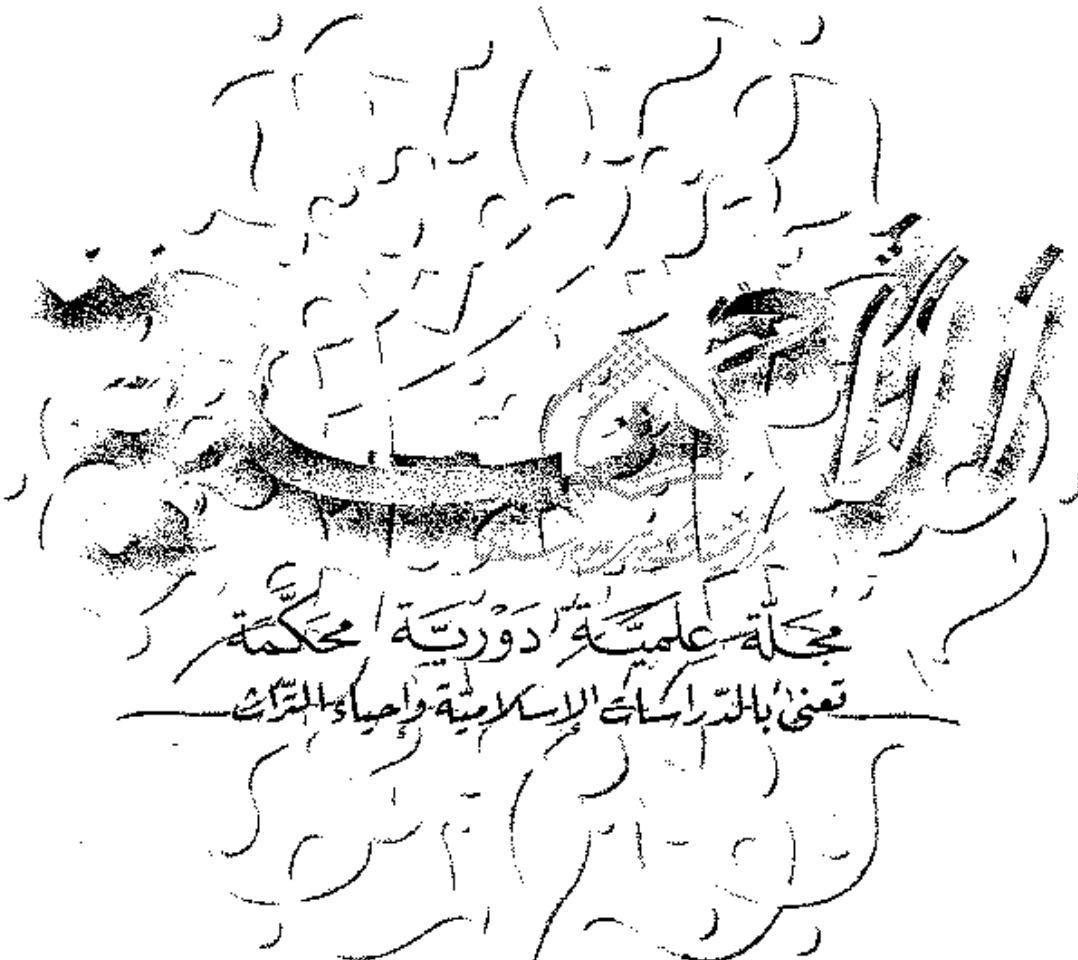 الأحمدية
مجَلّة عِلميَّة دَوْريَّة محَكَّمَة
تعنى بالدّراسات الإسلاميّة وإحياء التّراث